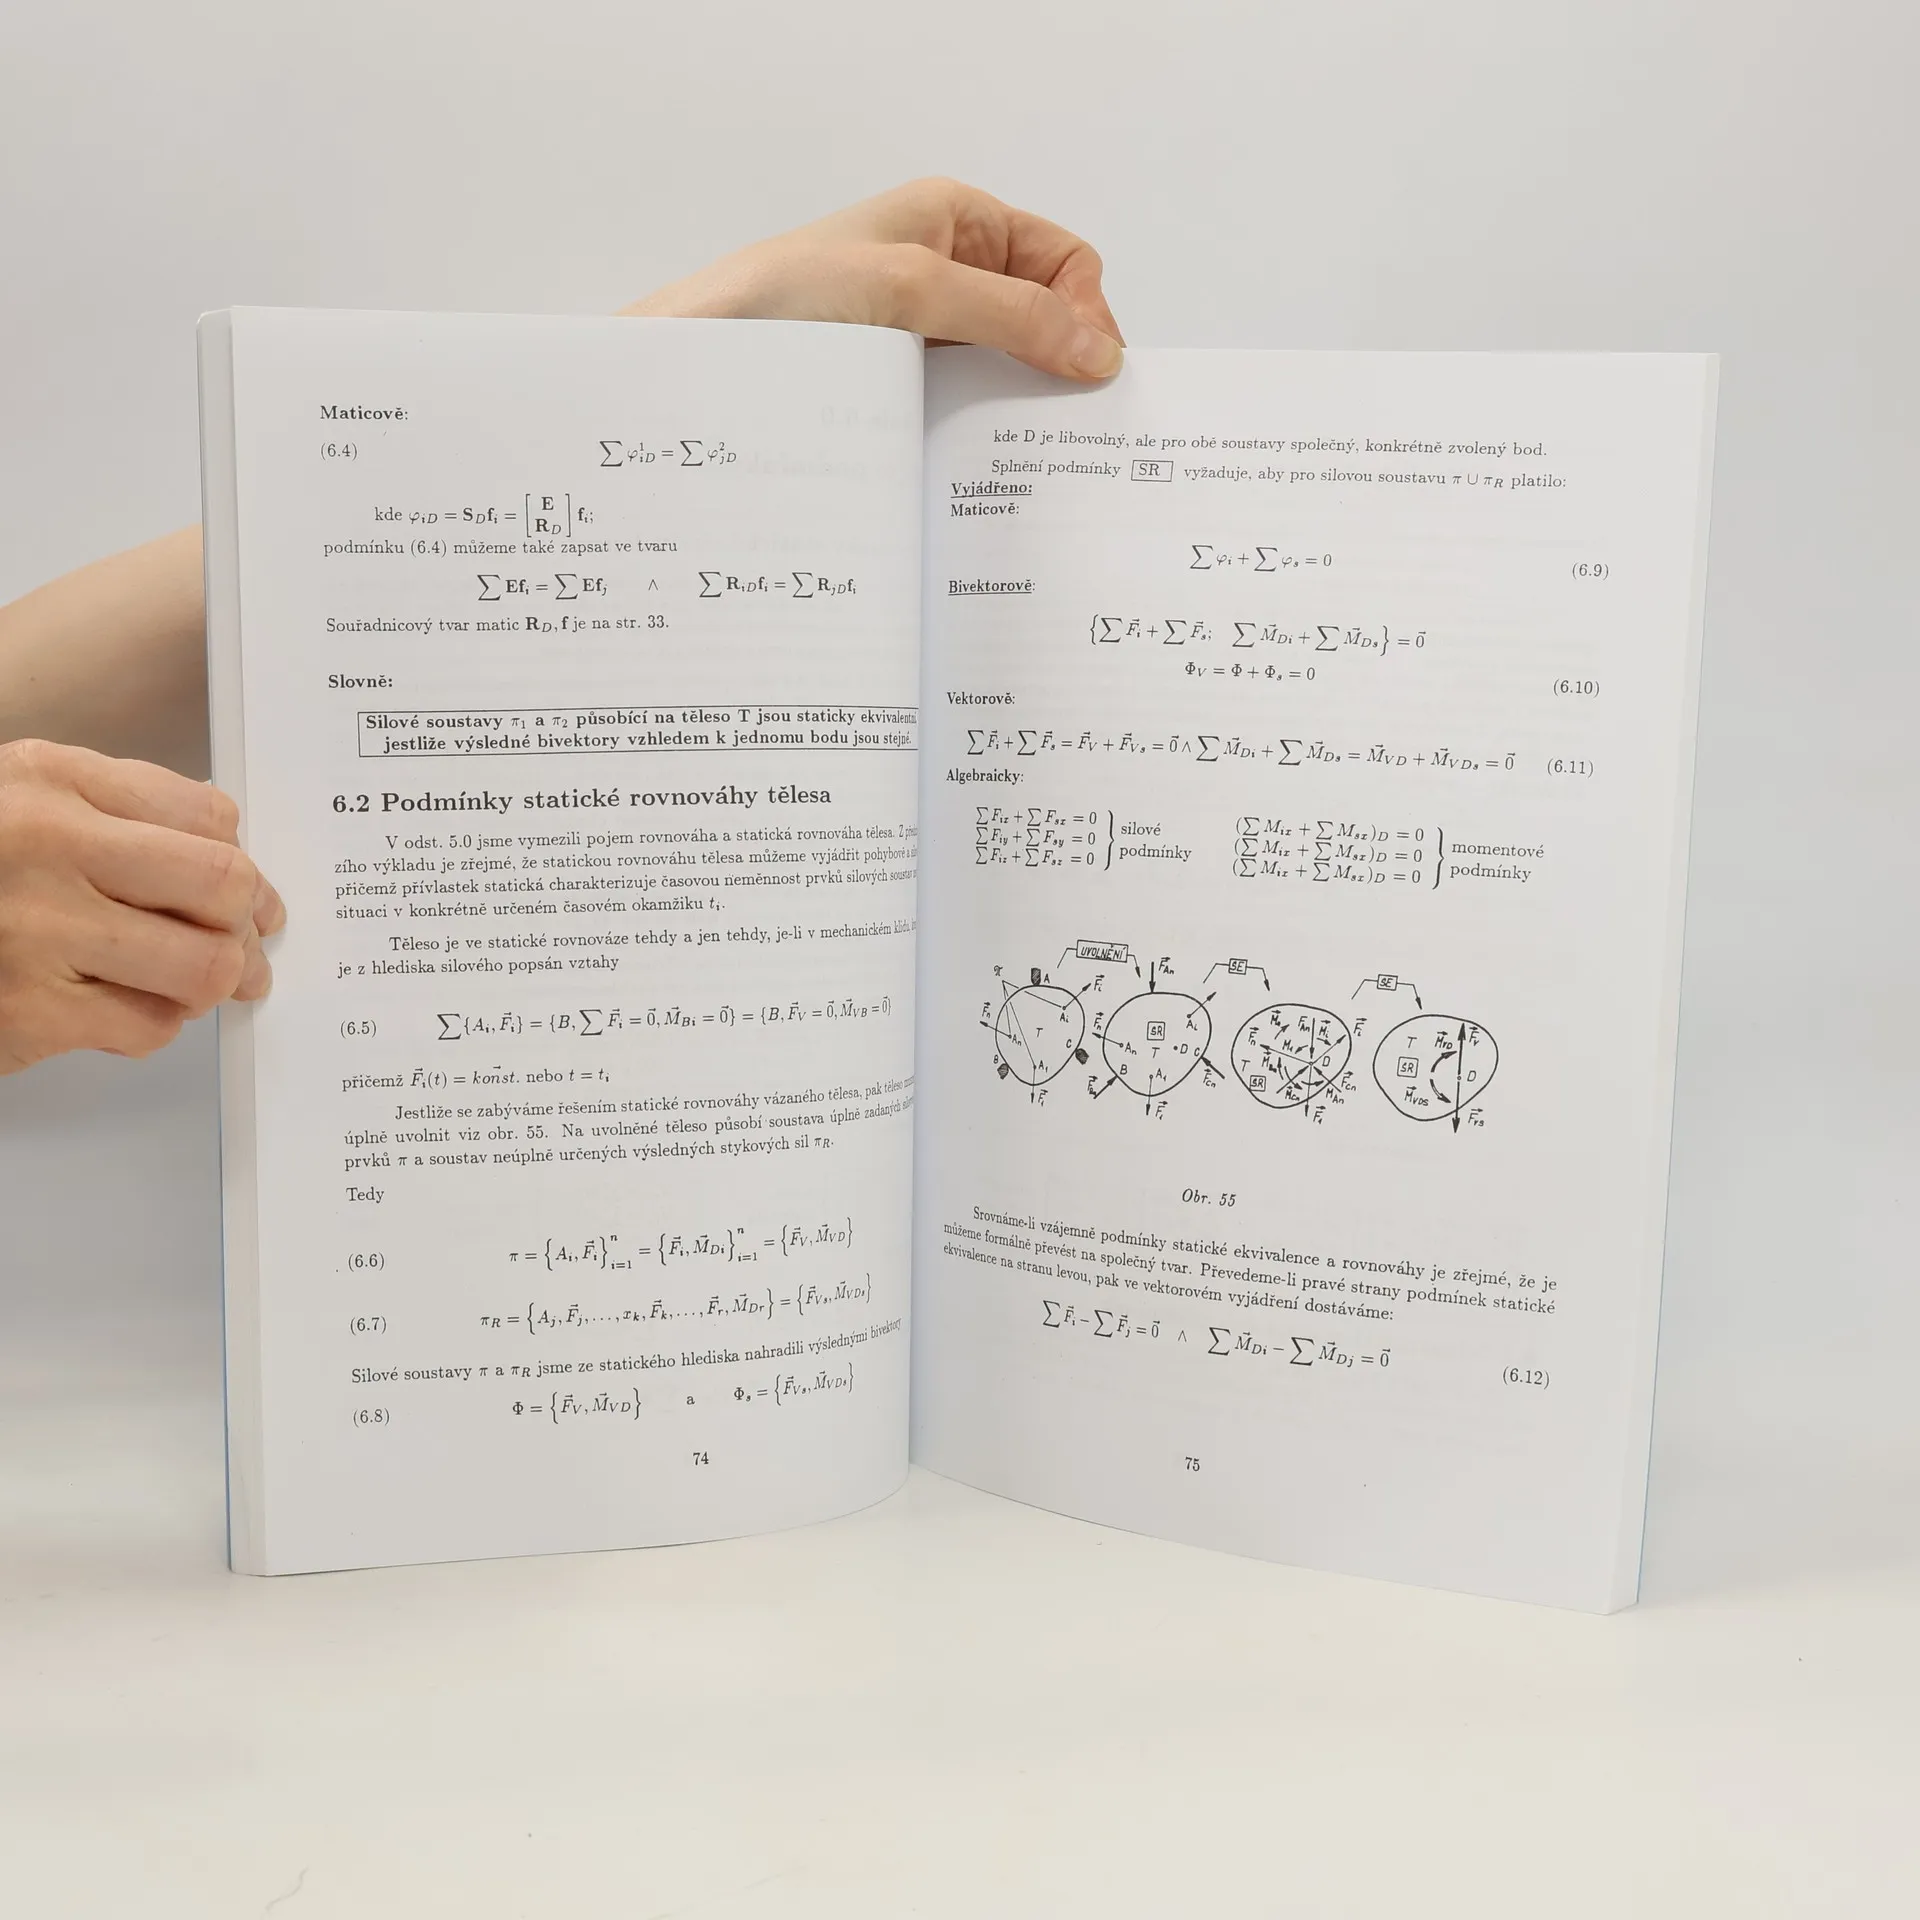 Maticově:
(6.4) ∑φ¹ᵢD = ∑φ²ⱼD
kde φᵢD = S_D fᵢ = [E R_D] fᵢ;
podmínku (6.4) můžeme také zapsat ve tvaru
∑Efᵢ = ∑Efⱼ ∧ ∑RᵢDfᵢ = ∑RⱼDfᵢ
Souřadnicový tvar matic R_D, f je na str. 33.
Slovně:
Silové soustavy π₁ a π₂ působící na těleso T jsou staticky ekvivalentní
jestliže výsledné bivektory vzhledem k jednomu bodu jsou stejné.
6.2 Podmínky statické rovnováhy tělesa
V odst. 5.0 jsme vymezili pojem rovnováha a statická rovnováha tělesa. Z
zího výkladu je zřejmé, že statickou rovnováhu tělesa můžeme vyjádřit pohybově a
přičemž přívlastek statická charakterizuje časovou neměnnost prvků silových soustav
situaci v konkrétně určeném časovém okamžiku tᵢ.
Těleso je ve statické rovnováze tehdy a jen tehdy, je-li v mechanickém klidu,
je z hlediska silového popsán vztahy
(6.5) ∑{Aᵢ, F⃗ᵢ} = {B, ∑F⃗ᵢ = 0⃗, M⃗Bᵢ = 0⃗} = {B, F⃗V = 0⃗, M⃗VB = 0⃗}
přičemž F⃗ᵢ(t) = kon⃗st. nebo t = tᵢ
Jestliže se zabýváme řešením statické rovnováhy vázaného tělesa, pak těleso
úplně uvolnit viz obr. 55. Na uvolněné těleso působí soustava úplně zadaných
prvků π a soustav neúplně určených výsledných stykových sil πR.
Tedy
(6.6) π = {Aᵢ, F⃗ᵢ}ⁿᵢ₌₁ = {F⃗ᵢ, M⃗Dᵢ}ⁿᵢ₌₁ = {F⃗V, M⃗VD}
(6.7) πR = {Aⱼ, F⃗ⱼ, . . . , xₖ, F⃗ₖ, . . . , F⃗ᵣ, M⃗Dr} = {F⃗Vs, M⃗VDs}
Silové soustavy π a πR jsme ze statického hlediska nahradili výslednými bivektory
(6.8) Φ = {F⃗V, M⃗VD} a Φₛ = {F⃗Vs, M⃗VDs}
74
kde D je libovolný, ale pro obě soustavy společný, konkrétně zvolený bod.
Splnění podmínky SR vyžaduje, aby pro silovou soustavu π ∪ πR platilo:
Vyjádřeno:
Maticově:
∑φᵢ + ∑φₛ = 0 (6.9)
Bivektorově:
{∑F⃗ᵢ + ∑F⃗ₛ; ∑M⃗Dᵢ + ∑M⃗Ds} = 0⃗
ΦV = Φ + Φₛ = 0 (6.10)
Vektorově:
∑F⃗ᵢ + ∑F⃗ₛ = F⃗V + F⃗Vs = 0⃗ ∧ ∑M⃗Dᵢ + ∑M⃗Ds = M⃗VD + M⃗VDs = 0⃗ (6.11)
Algebraicky:
∑Fix + ∑Fsx = 0 (∑Mix + ∑Msx)D = 0
∑Fiy + ∑Fsy = 0 silové (∑Mix + ∑Msx)D = 0 momentové
∑Fiz + ∑Fsz = 0 podmínky (∑Mix + ∑Msx)D = 0 podmínky
UVOLNĚNÍ SE SE
π A F⃗i F⃗n Ai T An C B A1 F⃗1
F⃗An F⃗n Ai SR An T D C B A1 F⃗Cn F⃗1
F⃗n F⃗An F⃗i T D SR F⃗Cn M⃗Cn M⃗An F⃗1
T M⃗VD F⃗V SR D M⃗VDS F⃗VS
Obr. 55
Srovnáme-li vzájemně podmínky statické ekvivalence a rovnováhy je zřejmé, že je
můžeme formálně převést na společný tvar. Převedeme-li pravé strany podmínek statické
ekvivalence na stranu levou, pak ve vektorovém vyjádření dostáváme:
∑F⃗ᵢ − ∑F⃗ⱼ = 0⃗ ∧ ∑M⃗Dᵢ − ∑M⃗Dⱼ = 0⃗ (6.12)
75